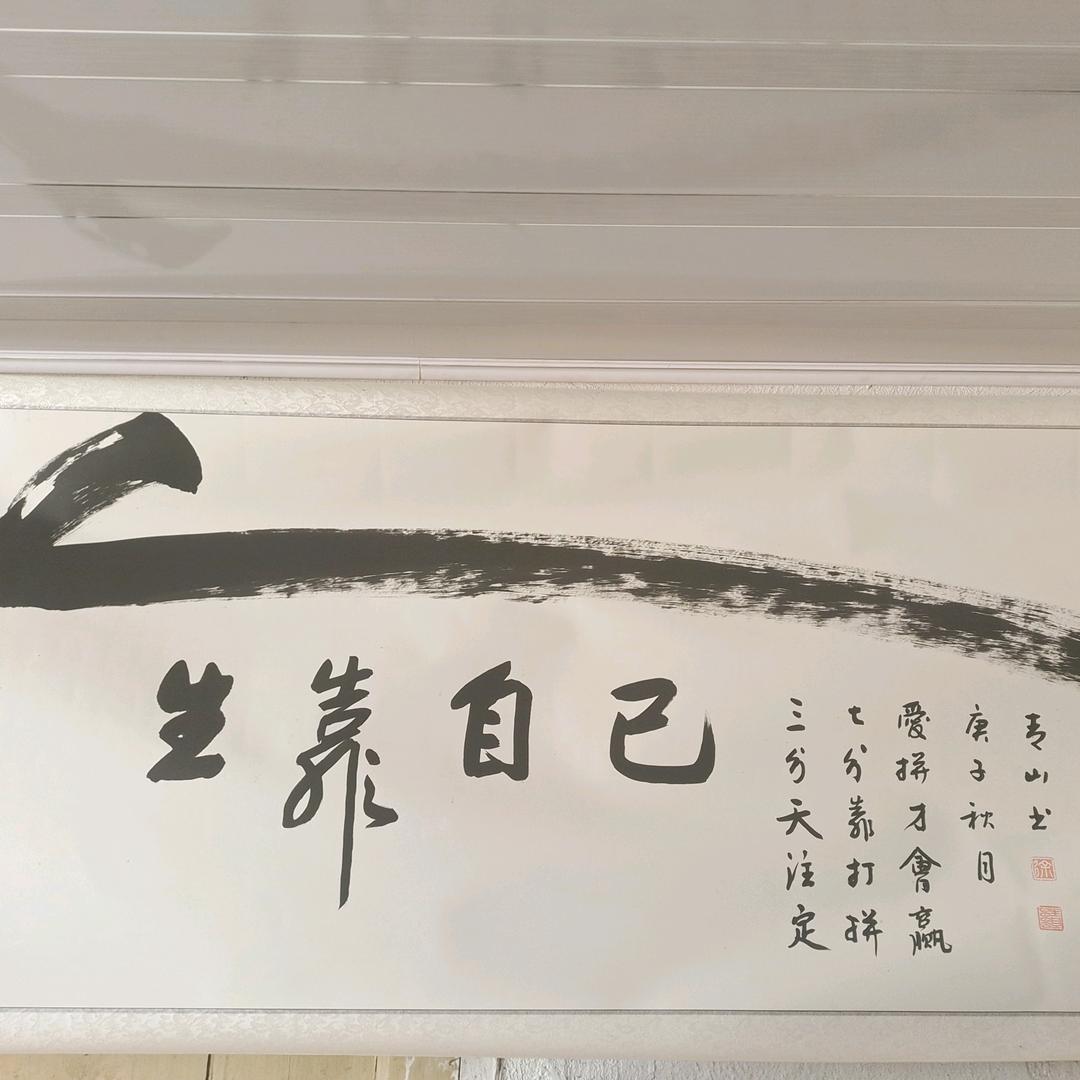 人
生靠自己
三分天注定
七分靠打拼
愛拼才會贏
庚子秋月
青山书
徐